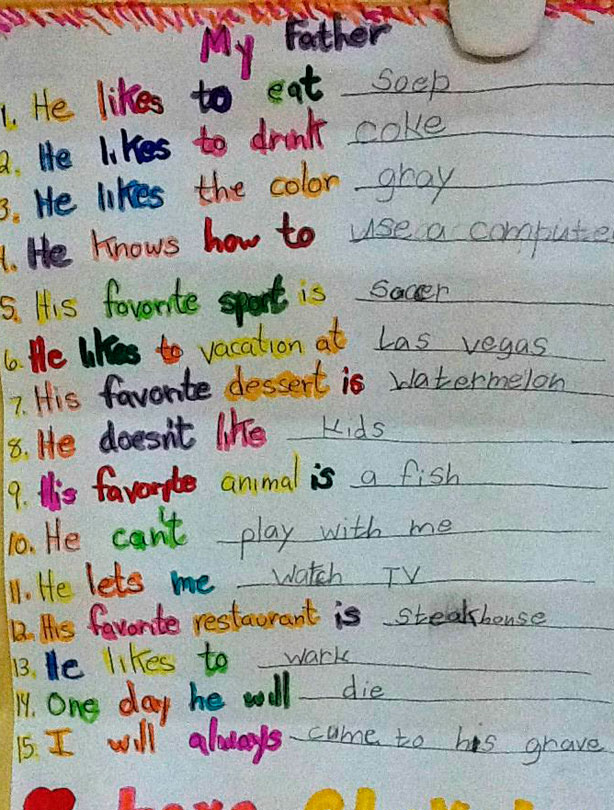 My Father
1. He likes to eat Soep
2. He likes to drink coke
3. He likes the color ghay
4. He knows how to use a compute
5. His favorite sport is Soccer
6. He likes to vacation at Las vegas
7. His favorite dessert is Watermelon
8. He doesn't like Kids
9. His favorite animal is a fish
10. He can't play with me
11. He lets me Watch TV
12. His favorite restaurant is Steakhouse
13. He likes to wark
14. One day he will die
15. I will always came to his ghave